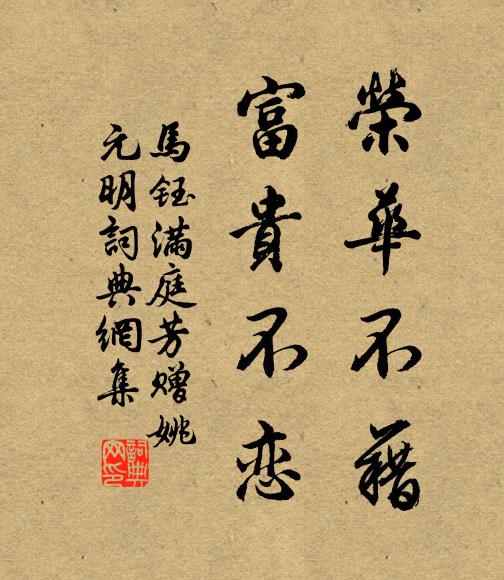 榮華不藉
富貴不恋
馬鈺满庭芳赠姚
元明詞典網集
詞典网印